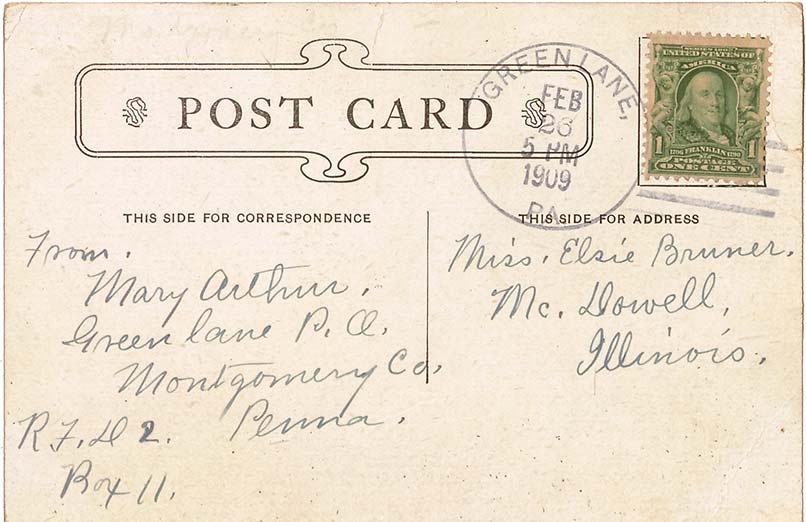 Montgomery Co
POST CARD
GREEN LANE,
FEB
26
5 PM
1909
PA.
SERIES 1902
UNITED STATES OF
AMERICA
1 1
1706 FRANKLIN 1790
POSTAGE
ONE CENT
THIS SIDE FOR CORRESPONDENCE
From.
Mary Arthur.
Green lane P. O.
Montgomery Co.
Penna.
R F. D 2.
Box 11.
THIS SIDE FOR ADDRESS
Miss. Elsie Bruner.
Mc. Dowell,
Illinois.